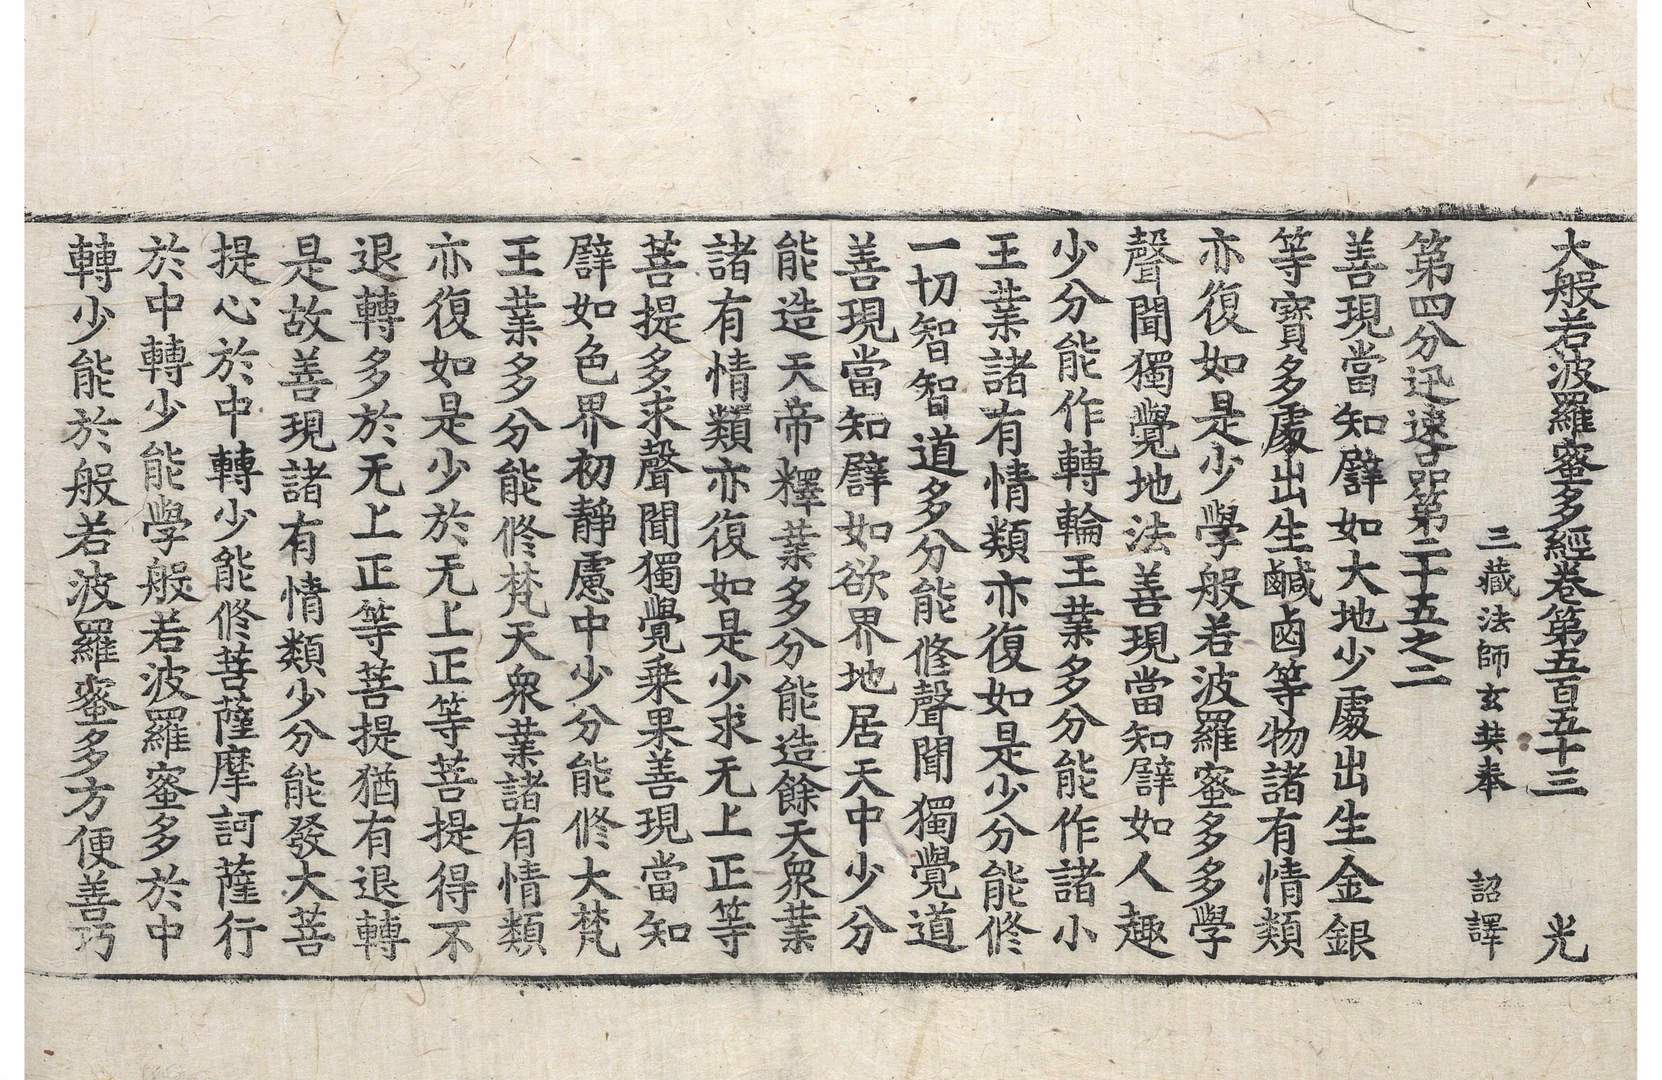 大般若波羅蜜多經卷第五百五十三 光
三藏法師玄奘奉 詔譯
第四分迅速品第二十五之二
善現當知譬如大地少處出生金銀
等寶多處出生鹹鹵等物諸有情類
亦復如是少學般若波羅蜜多多學
聲聞獨覺地法善現當知譬如人趣
少分能作轉輪王業多分能作諸小
王業諸有情類亦復如是少分能修
一切智智道多分能修聲聞獨覺道
善現當知譬如欲界地居天中少分
能造天帝釋業多分能造餘天衆業
諸有情類亦復如是少求无上正等
菩提多求聲聞獨覺乗果善現當知
譬如色界初靜慮中少分能修大梵
王業多分能修梵天衆業諸有情類
亦復如是少於无上正等菩提得不
退轉多於无上正等菩提猶有退轉
是故善現諸有情類少分能發大菩
提心於中轉少能修菩薩摩訶薩行
於中轉少能學般若波羅蜜多於中
轉少能於般若波羅蜜多方便善巧